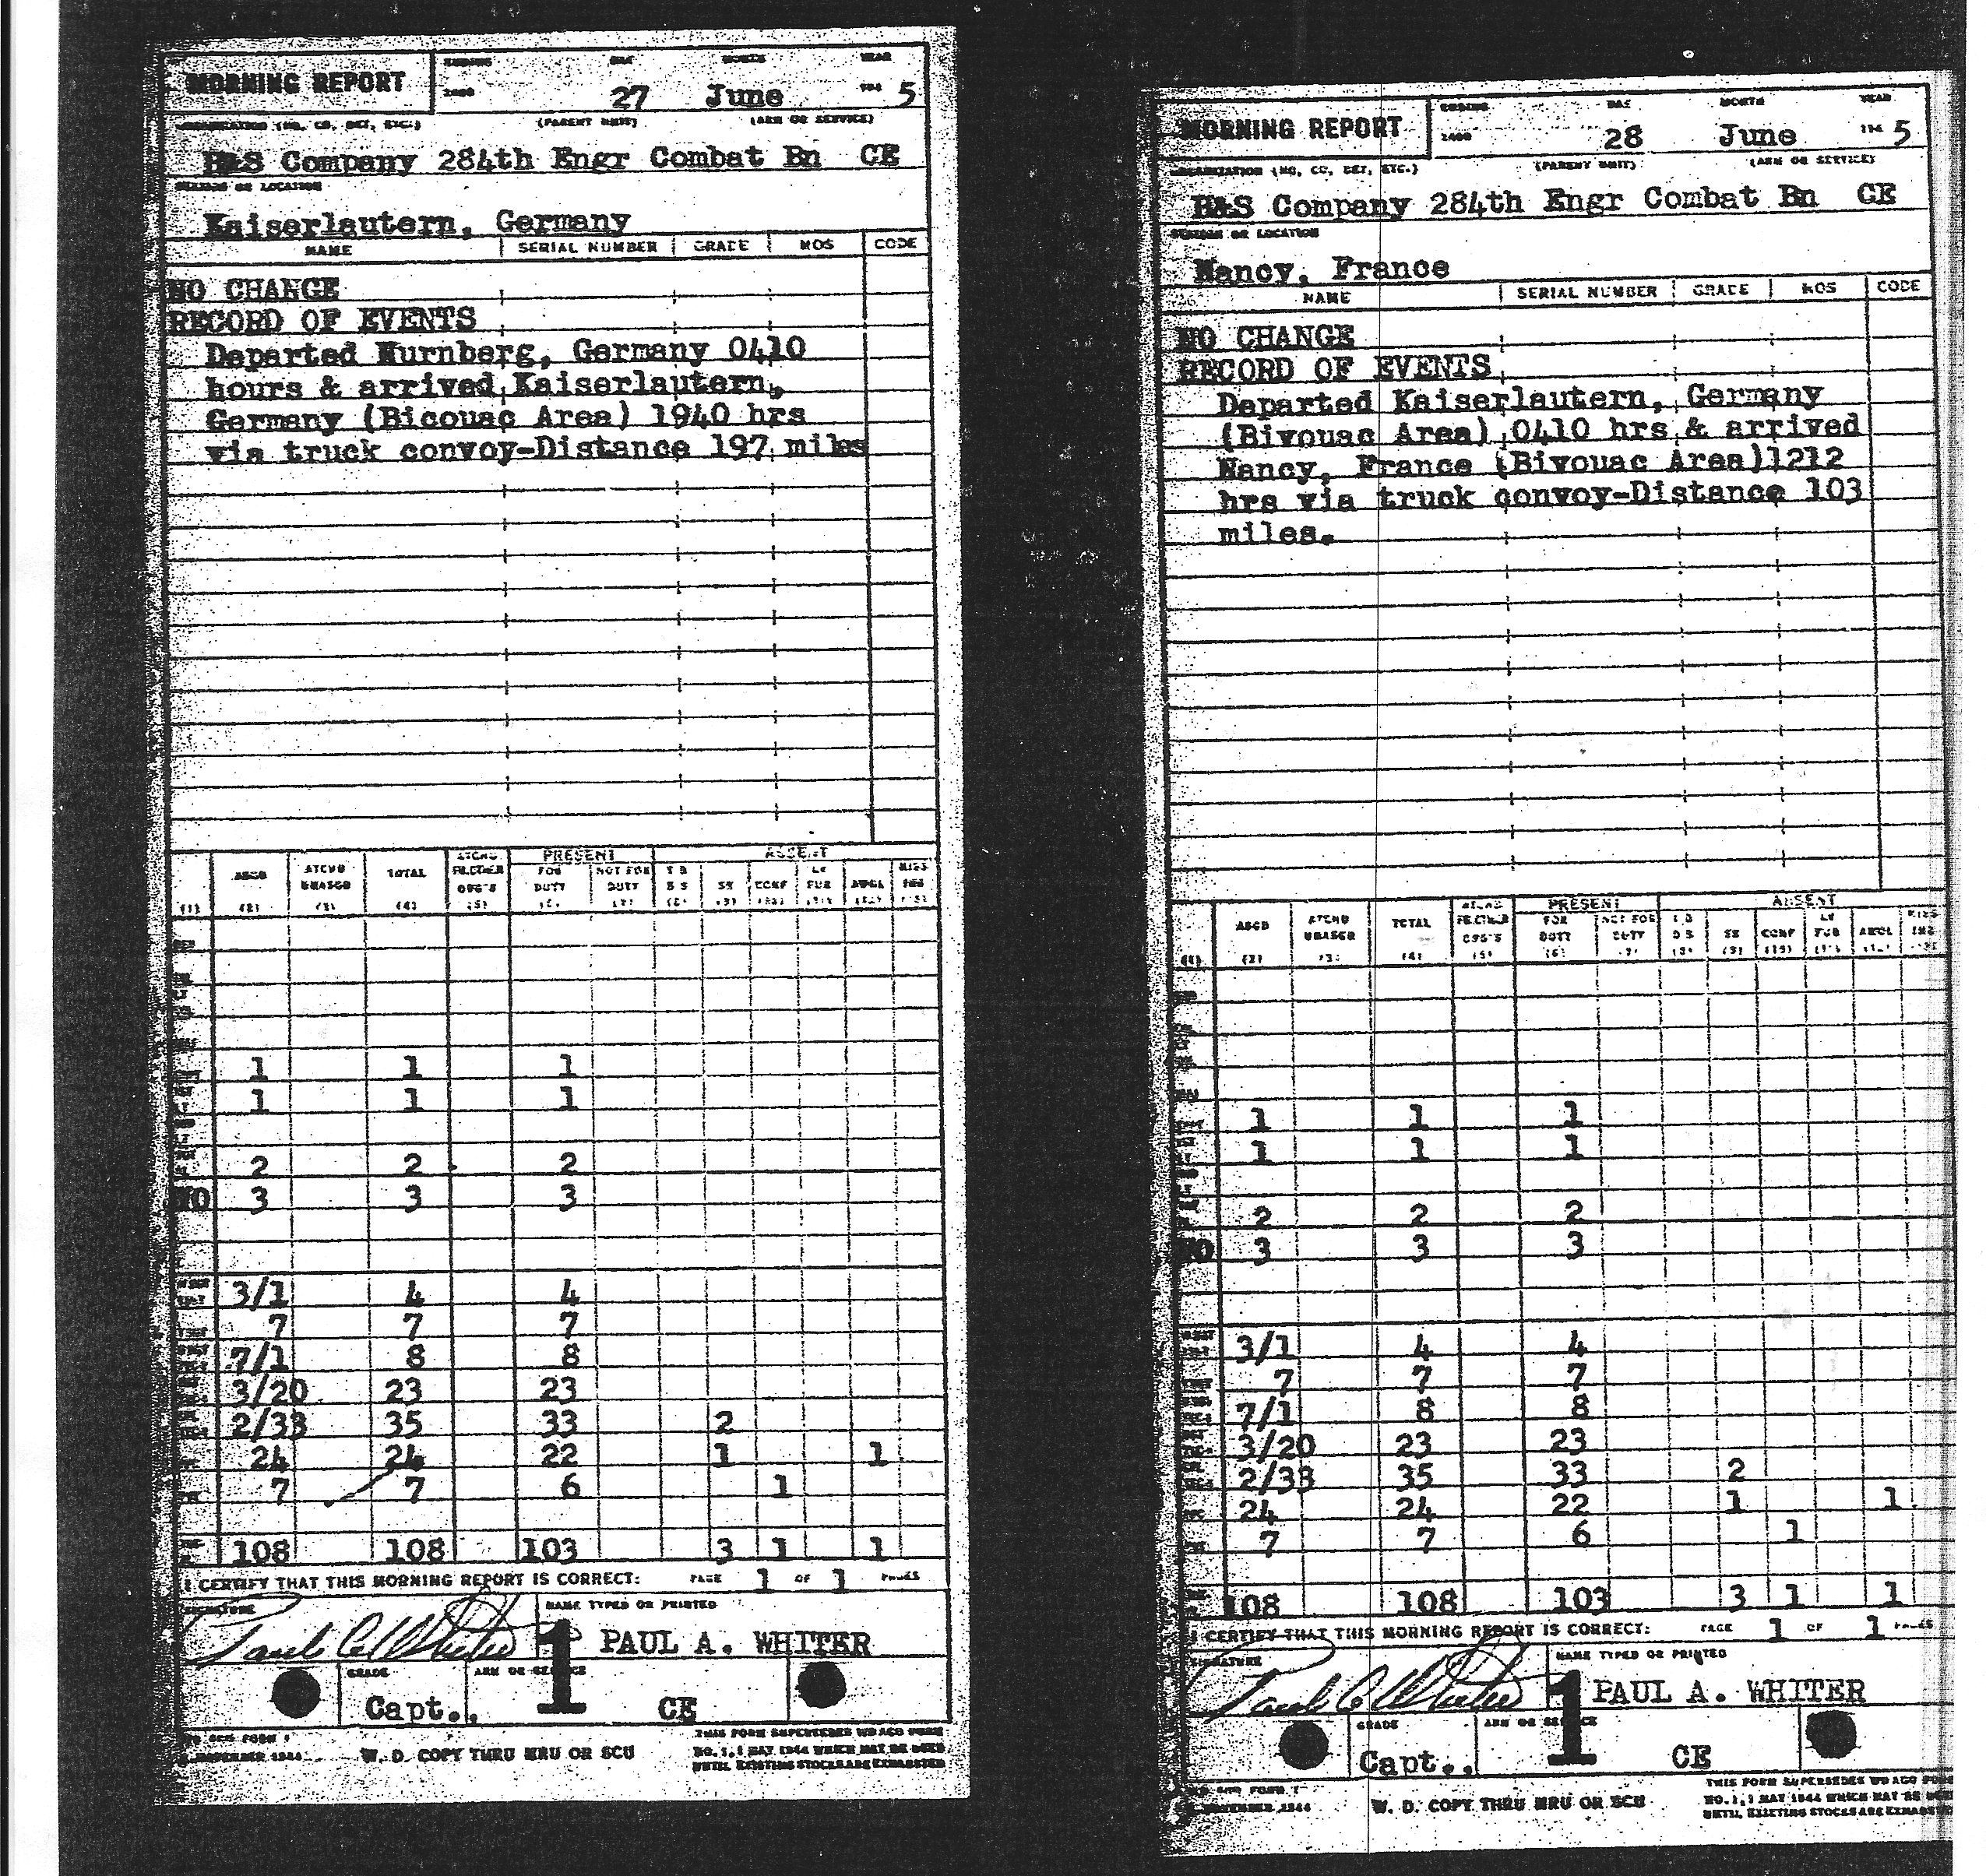 MORNING REPORT
ENDING
DAY
MONTH
YEAR
2400
27 June 194 5
ORGANIZATION (HQ, CO, DET, ETC.) (PARENT UNIT) (ARM OR SERVICE)
H&S Company 284th Engr Combat Bn CE
STATION OR LOCATION
Kaiserlautern, Germany
NAME SERIAL NUMBER GRADE MOS CODE
NO CHANGE
RECORD OF EVENTS
Departed Nurnberg, Germany 0410
hours & arrived Kaiserlautern,
Germany (Bicouac Area) 1940 hrs
via truck convoy-Distance 197 miles
PRESENT ABSENT
ASGD ATCHD UNASGD TOTAL FOR DUTY NOT FOR DUTY SK CONF LV FUR AWOL MISS ING
1 1 1
1 1 1
2 2 2
WO 3 3 3
3/1 4 4
7 7 7
7/1 8 8
3/20 23 23
2/33 35 33 2
24 24 22 1 1
7 7 6 1
108 108 103 3 1 1
I CERTIFY THAT THIS MORNING REPORT IS CORRECT: PAGE 1 OF 1 PAGES
SIGNATURE NAME TYPED OR PRINTED
1 PAUL A. WHITER
GRADE ARM OR SERVICE
Capt., CE
NOVEMBER 1944 W. D. COPY THRU MRU OR SCU
THIS FORM SUPERSEDES WD AGO FORM
NO. 1, 1 MAY 1944 WHICH MAY BE USED
UNTIL EXISTING STOCKS ARE EXHAUSTED
MORNING REPORT
ENDING
DAY
MONTH
YEAR
2400
28 June 194 5
ORGANIZATION (HQ, CO, DET, ETC.) (PARENT UNIT) (ARM OR SERVICE)
H&S Company 284th Engr Combat Bn CE
STATION OR LOCATION
Nancy, France
NAME SERIAL NUMBER GRADE MOS CODE
NO CHANGE
RECORD OF EVENTS
Departed Kaiserlautern, Germany
(Bivouac Area) 0410 hrs & arrived
Nancy, France (Bivouac Area)1212
hrs via truck convoy-Distance 103
miles.
PRESENT ABSENT
ASGD ATCHD UNASGD TOTAL FOR DUTY NOT FOR DUTY SK CONF LV FUR AWOL MISS ING
1 1 1
1 1 1
2 2 2
WO 3 3 3
3/1 4 4
7 7 7
7/1 8 8
3/20 23 23
2/33 35 33 2
24 24 22 1 1
7 7 6 1
108 108 103 3 1 1
I CERTIFY THAT THIS MORNING REPORT IS CORRECT: PAGE 1 OF 1 PAGES
SIGNATURE NAME TYPED OR PRINTED
1 PAUL A. WHITER
GRADE ARM OR SERVICE
Capt., CE
NOVEMBER 1944 W. D. COPY THRU MRU OR SCU
THIS FORM SUPERSEDES WD AGO FORM
NO. 1, 1 MAY 1944 WHICH MAY BE USED
UNTIL EXISTING STOCKS ARE EXHAUSTED